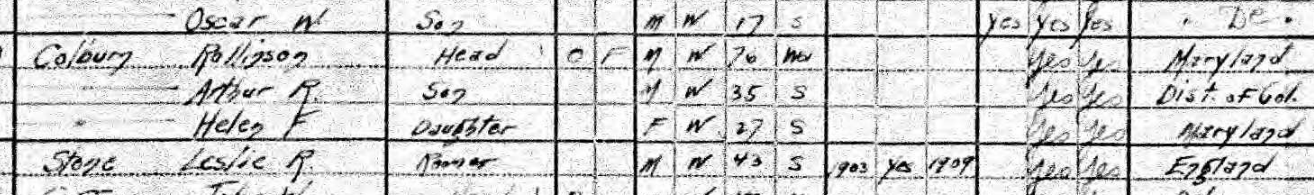 Oscar W. Son M W 17 S Yes Yes Yes Do.
Colburn Rollinson Head O F M W 76 Wd Yes Yes Maryland
Arthur R. Son M W 35 S Yes Yes Dist. of Col.
Helen F Daughter F W 27 S Yes Yes Maryland
Stone Leslie R. Roomer M W 43 S 1903 Yes 1909 Yes Yes England